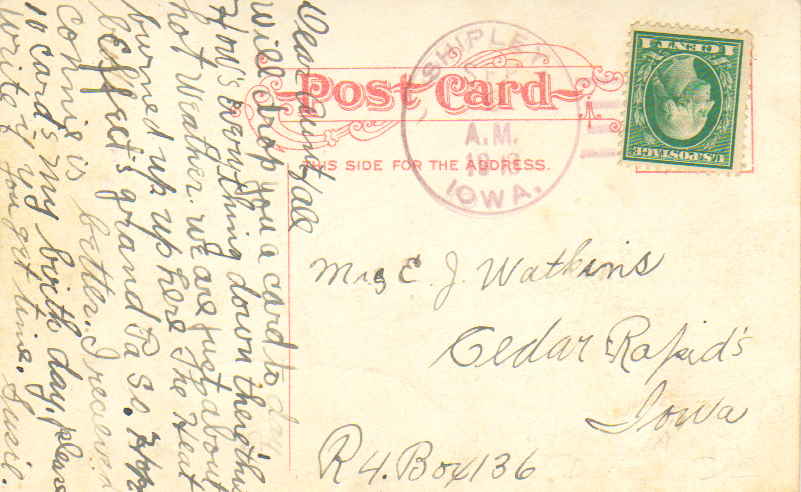 Post Card
THIS SIDE FOR THE ADDRESS.
SHIPLEY
A.M.
IOWA.
U.S. POSTAGE
1 CENT 1
Mrs E. J. Watkins
Cedar Rapid's
Iowa
R 4. Box 136
Dear Aunt & all
will drop you a card to day
How's everything down there this
hot weather. we are just about
burned up up here. The Heat
effects grandPa so. Hope
Connie is better. I received
10 card's my birth day. please
write if you get time. Susie.